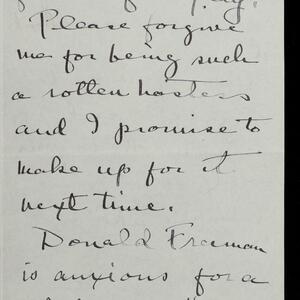 Please forgive
me for being such
a rotten hostess
and I promise to
make up for it
next time.
Donald Freeman
is anxious for a